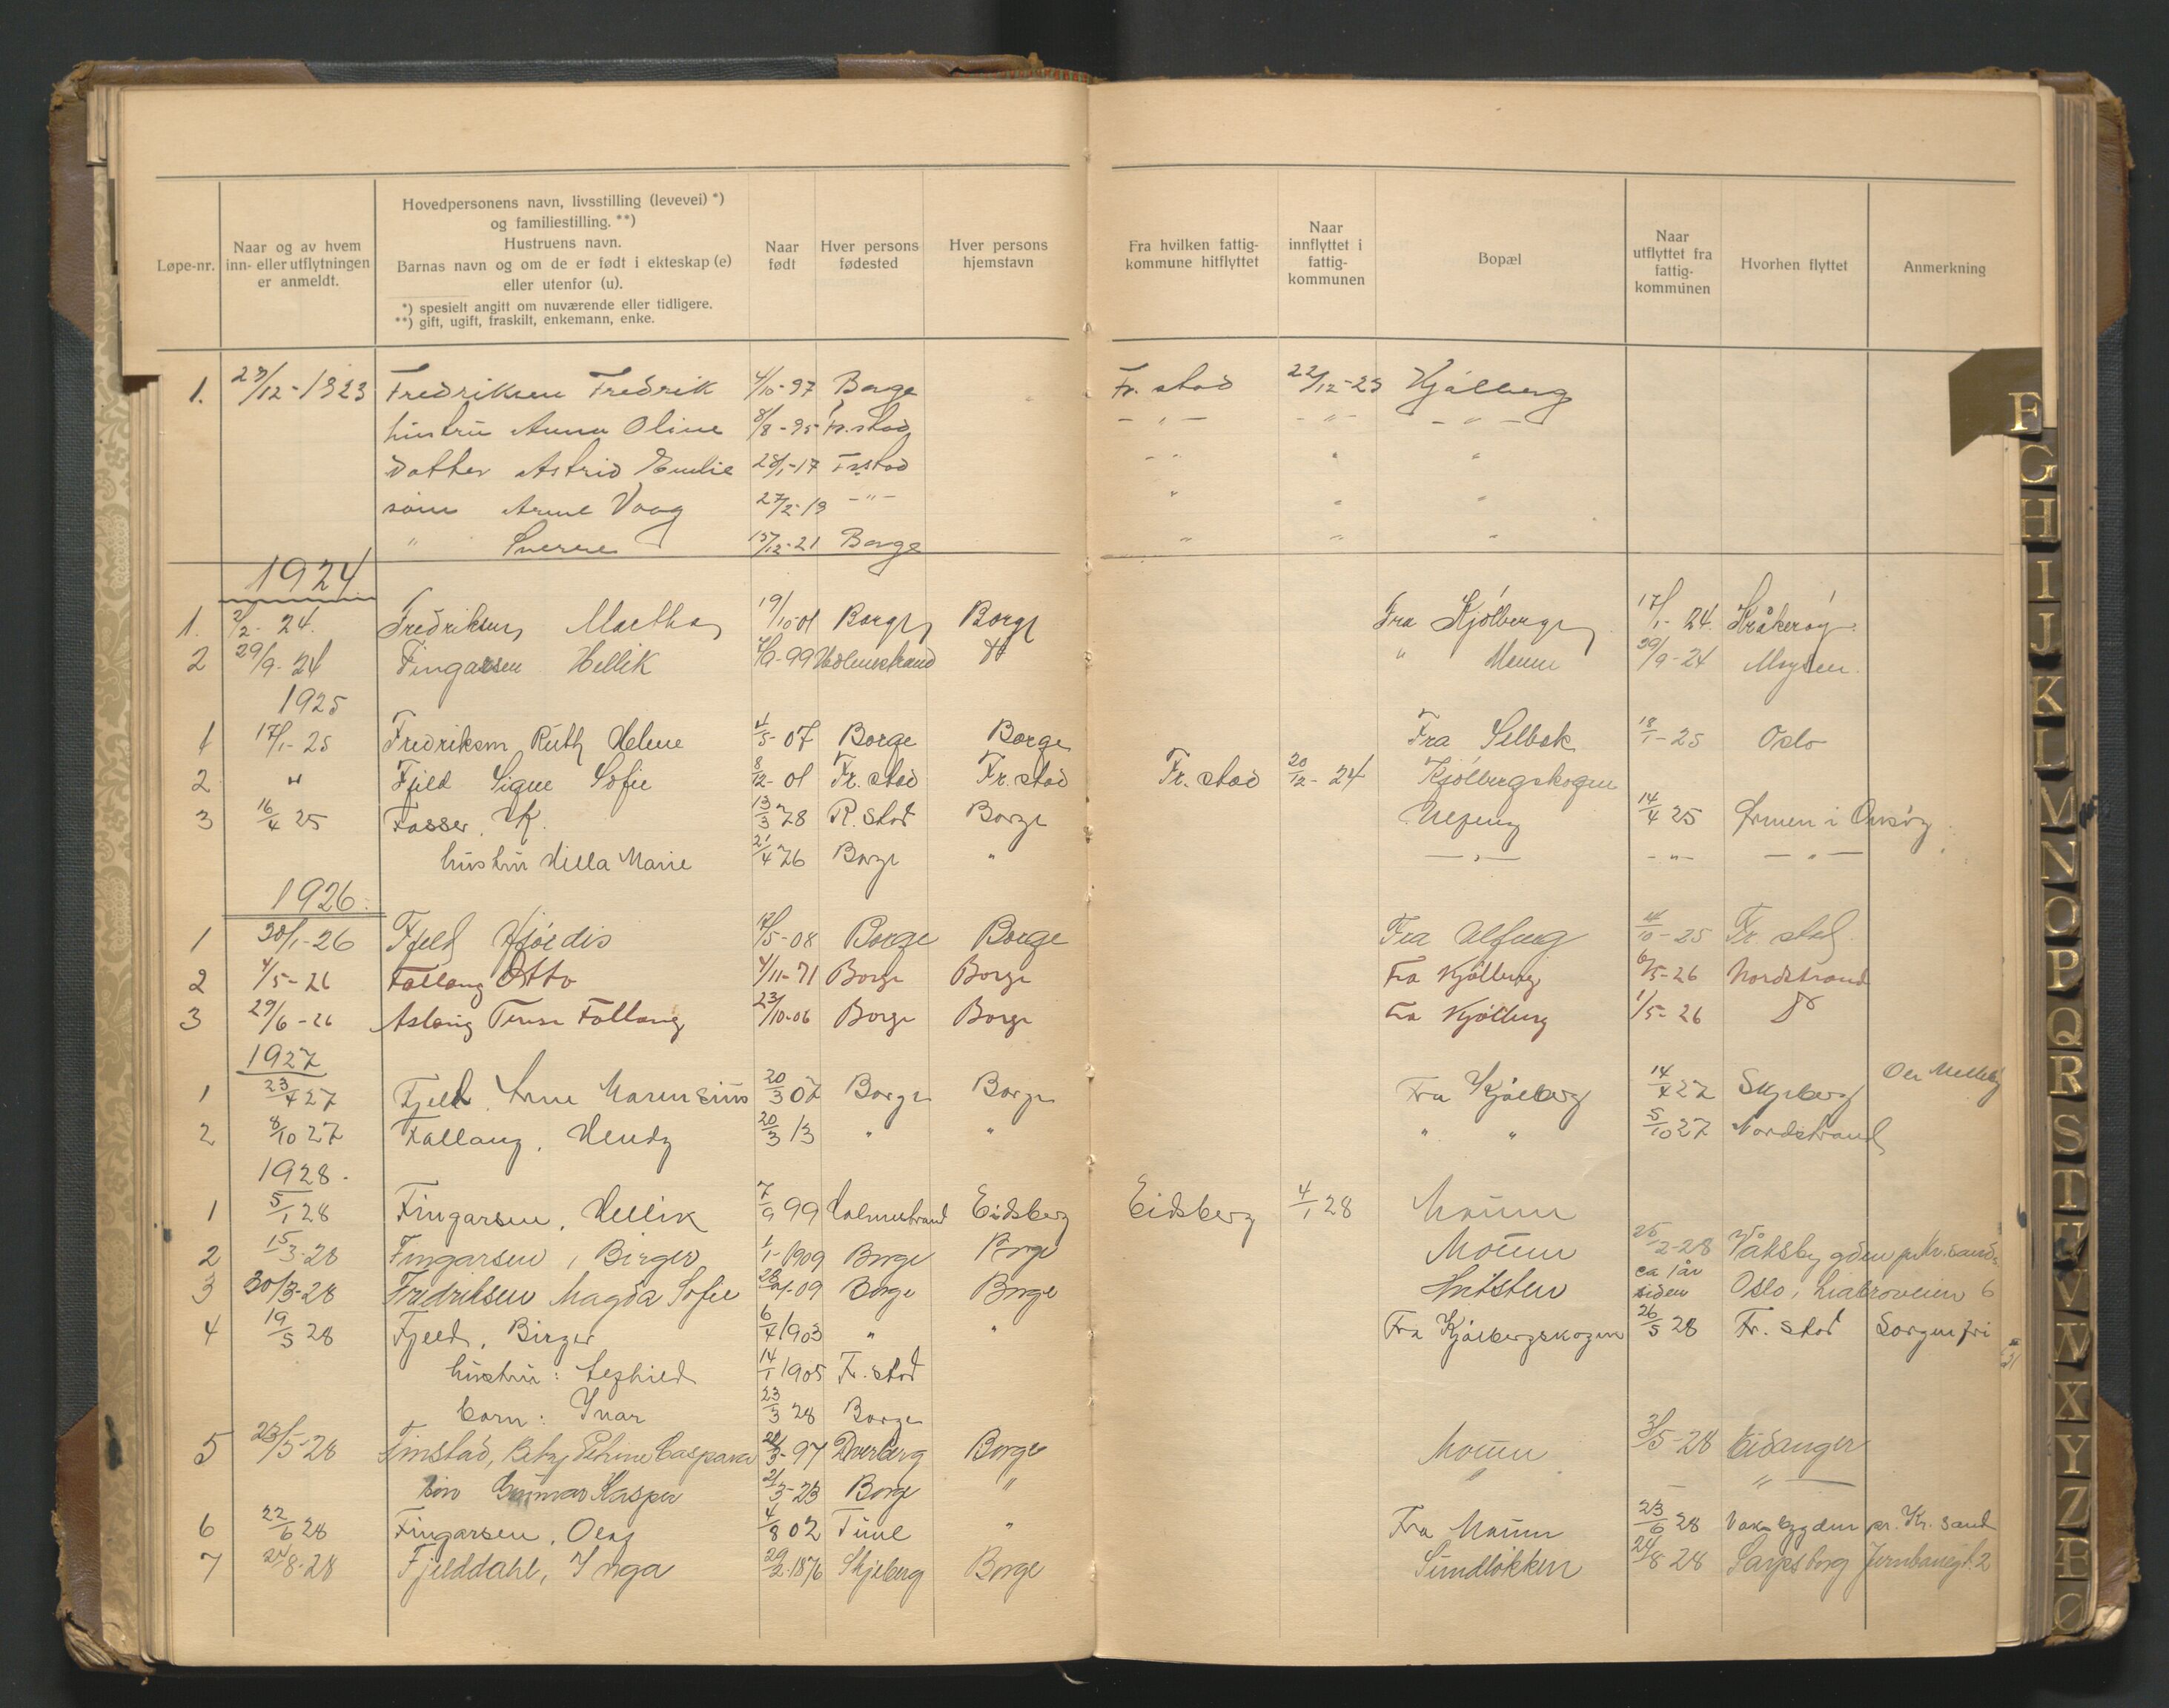 Løpe-nr.
Naar og av hvem
inn- eller utflytningen
er anmeldt.
Hovedpersonens navn, livsstilling (levevei) *)
og familiestilling. **)
Hustruens navn.
Barnas navn og om de er født i ekteskap (e)
eller utenfor (u).
*) spesielt angitt om nuværende eller tidligere.
**) gift, ugift, fraskilt, enkemann, enke.
Naar
født
Hver persons
fødested
Hver persons
hjemstavn
Fra hvilken fattig-
kommune hitflyttet
Naar
innflyttet i
fattig-
kommunen
Bopæl
Naar
utflyttet fra
fattig-
kommunen
Hvorhen flyttet
Anmerkning
1. 29/12-1923 Fredriksen Fredrik 4/10-97 Borge Fr. stad 22/12-23 Kjølberg
hustru Anna Oline 8/8-95 Fr.stad -"- -"- -"-
datter Astrid Emilie 28/1-17 Fr.stad -"- " "
sønn Arne Vaag 27/2-19 -"- " " "
" Sverre 15/12-21 Borge " " "
1924
1. 2/2-24. Fredriksen Martha 19/10-01 Borge Borge Fra Kjölberg 17/1-24. Kråkerøy.
2 29/9-24 Fingarsen Hellik 7/9-99 Holmestrand do " Moum 29/9-24 Mysen.
1925
1 17/1-25 Fredriksen Ruth Helene 4/5-07 Borge Borge Fra Selbak 18/1-25 Oslo
2 " Fjeld Signe Sofie 8/12-01 Fr. stad Fr. stad Fr. stad 20/12-24 Kjölbergskogen
3 16/4 25 Fosser, K. 13/3 78 R. stad Borge Ulfeng 14/4 25 i Onsøy
hustru Hilla Marie 21/4 76 Borge " -"- -"- -"-
1926.
1 30/1-26 Fjeld Hjördis 17/5-08 Borge Borge Fra Ulfeng 4/10-25 Fr. stad.
2 4/5-26 Fallang Otto 4/11-71 Borge Borge Fra Kjølberg 6/5-26 Nordstrand
3 29/6-26 Aslaug Fallang 23/10-06 Borge Borge Fra Kjølberg 1/5-26 do
1927
1 23/4 27 Fjeld, Arne Marensius 20/3 07 Borge Borge Fra Kjølberg 14/4 27 Skjeberg
2 8/10 27 Fallang, Hendy 20/3 13 " " " " 5/10 27 Nordstrand
1928.
1 5/1 28 Fingarsen, Hellik 7/9 99 Holmestrand Eidsberg Eidsberg 4/1 28 Moum
2 15/3-28 Fingarsen, Birger 1/1-1909 Borge Borge Moum 25/2-28 Våksbygden pr. Kr.sand
3 30/3-28 Fredriksen Magda Sofie 09 Borge Borge ca 1 år siden Oslo, Liabroveien 6
4 19/5 28 Fjeld, Birger 6/4 1903 " " Fra Kjølbergskogen 26/5 28 Fr. stad Sorgenfri
hustru: 14/1 1905 Fr. stad
barn: Ivar 23/3 28 Borge
5 23/5-28 Finstad, Betzy Caspara 97 Dverberg Borge Moum 31/5-28 Eidanger
sön Gunnar Kasper 21/3-23 Borge " " "
6 22/6 28 Fingarsen, Olaf 4/8 02 Tune " Fra Moum 23/6 28 Vaksbygden pr. Kr. sand
7 24/8-28 Fjelddahl, Inga 29/2-1876 Skjeberg Borge Sundlökken 24/8 28 Sarpsborg Jernbanegt. 2
F
G
H
I
J
K
L
M
N
O
P
Q
R
S
T
U
V
W
X
Y
Z
Æ
Ø